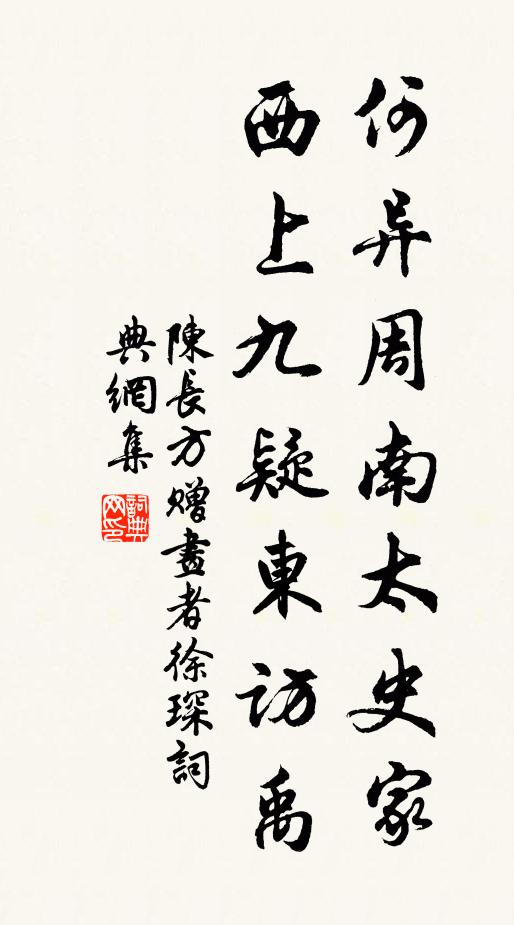 何异周南太史家
西上九疑東访禹
陳長方赠畫者徐琛詞
典網集
詞典
网印